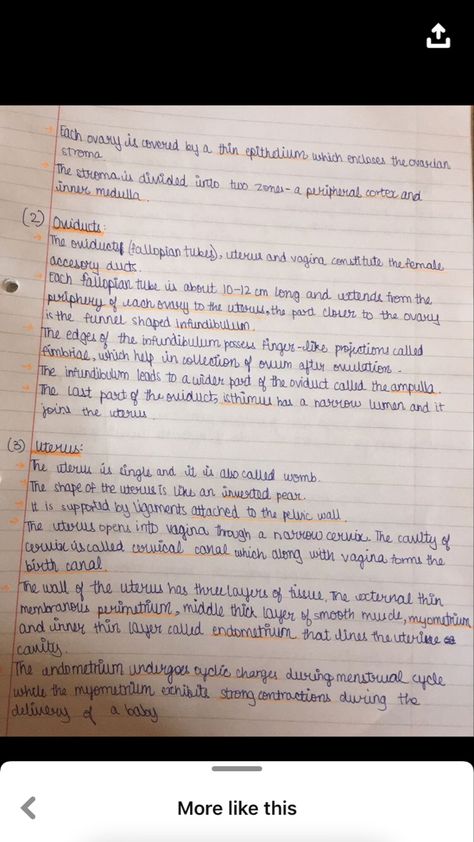 → Each ovary is covered by a thin epithelium which encloses the ovarian
stroma
→ The stroma is divided into two zones - a peripheral cortex and
inner medulla.
(2) Oviducts:
→ The oviducts (fallopian tubes), uterus and vagina constitute the female
accesory ducts.
→ Each fallopian tube is about 10-12 cm long and extends from the
periphery of each ovary to the uterus, the part closer to the ovary
is the funnel shaped infundibulum.
→ The edges of the infundibulum possess finger-like projections called
fimbriae, which help in collection of ovum after ovulation.
→ The infundibulum leads to a wider part of the oviduct called the ampulla.
→ The last part of the oviducts, isthmus has a narrow lumen and it
joins the uterus.
(3) Uterus:
→ The uterus is single and it is also called womb.
→ The shape of the uterus is like an inverted pear.
→ It is supported by ligaments attached to the pelvic wall.
→ The uterus opens into vagina through a narrow cervix. The cavity of
cervix is called cervical canal which along with vagina forms the
birth canal.
→ The wall of the uterus has three layers of tissue. The external thin
membranous perimetrium, middle thick layer of smooth muscle, myometrium
and inner thin layer called endometrium that lines the uterine
cavity.
→ The endometrium undergoes cyclic changes during menstrual cycle
while the myometrium exhibits strong contractions during the
delivery of a baby
More like this